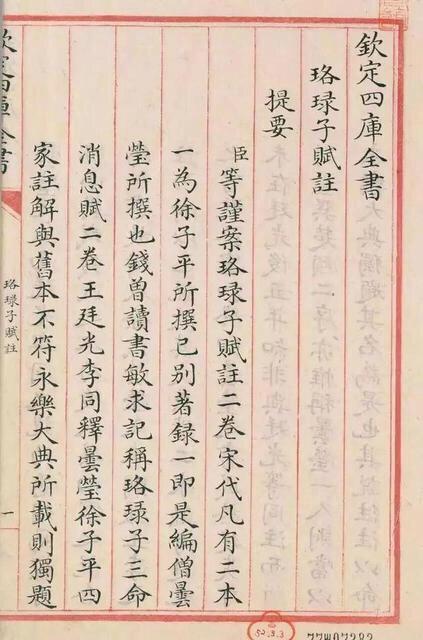 欽定四庫全書
珞琭子賦註
提要
臣等謹案珞琭子賦註二卷宋代凡有二本
一為徐子平所撰已別著録一即是編僧曇
瑩所撰也錢曽讀書敏求記稱珞琭子三命
消息賦二卷王廷光李同釋曇瑩徐子平四
家註解與舊本不符永樂大典所載則獨題
欽定四庫全書
珞琭子賦註
一
52.3.3